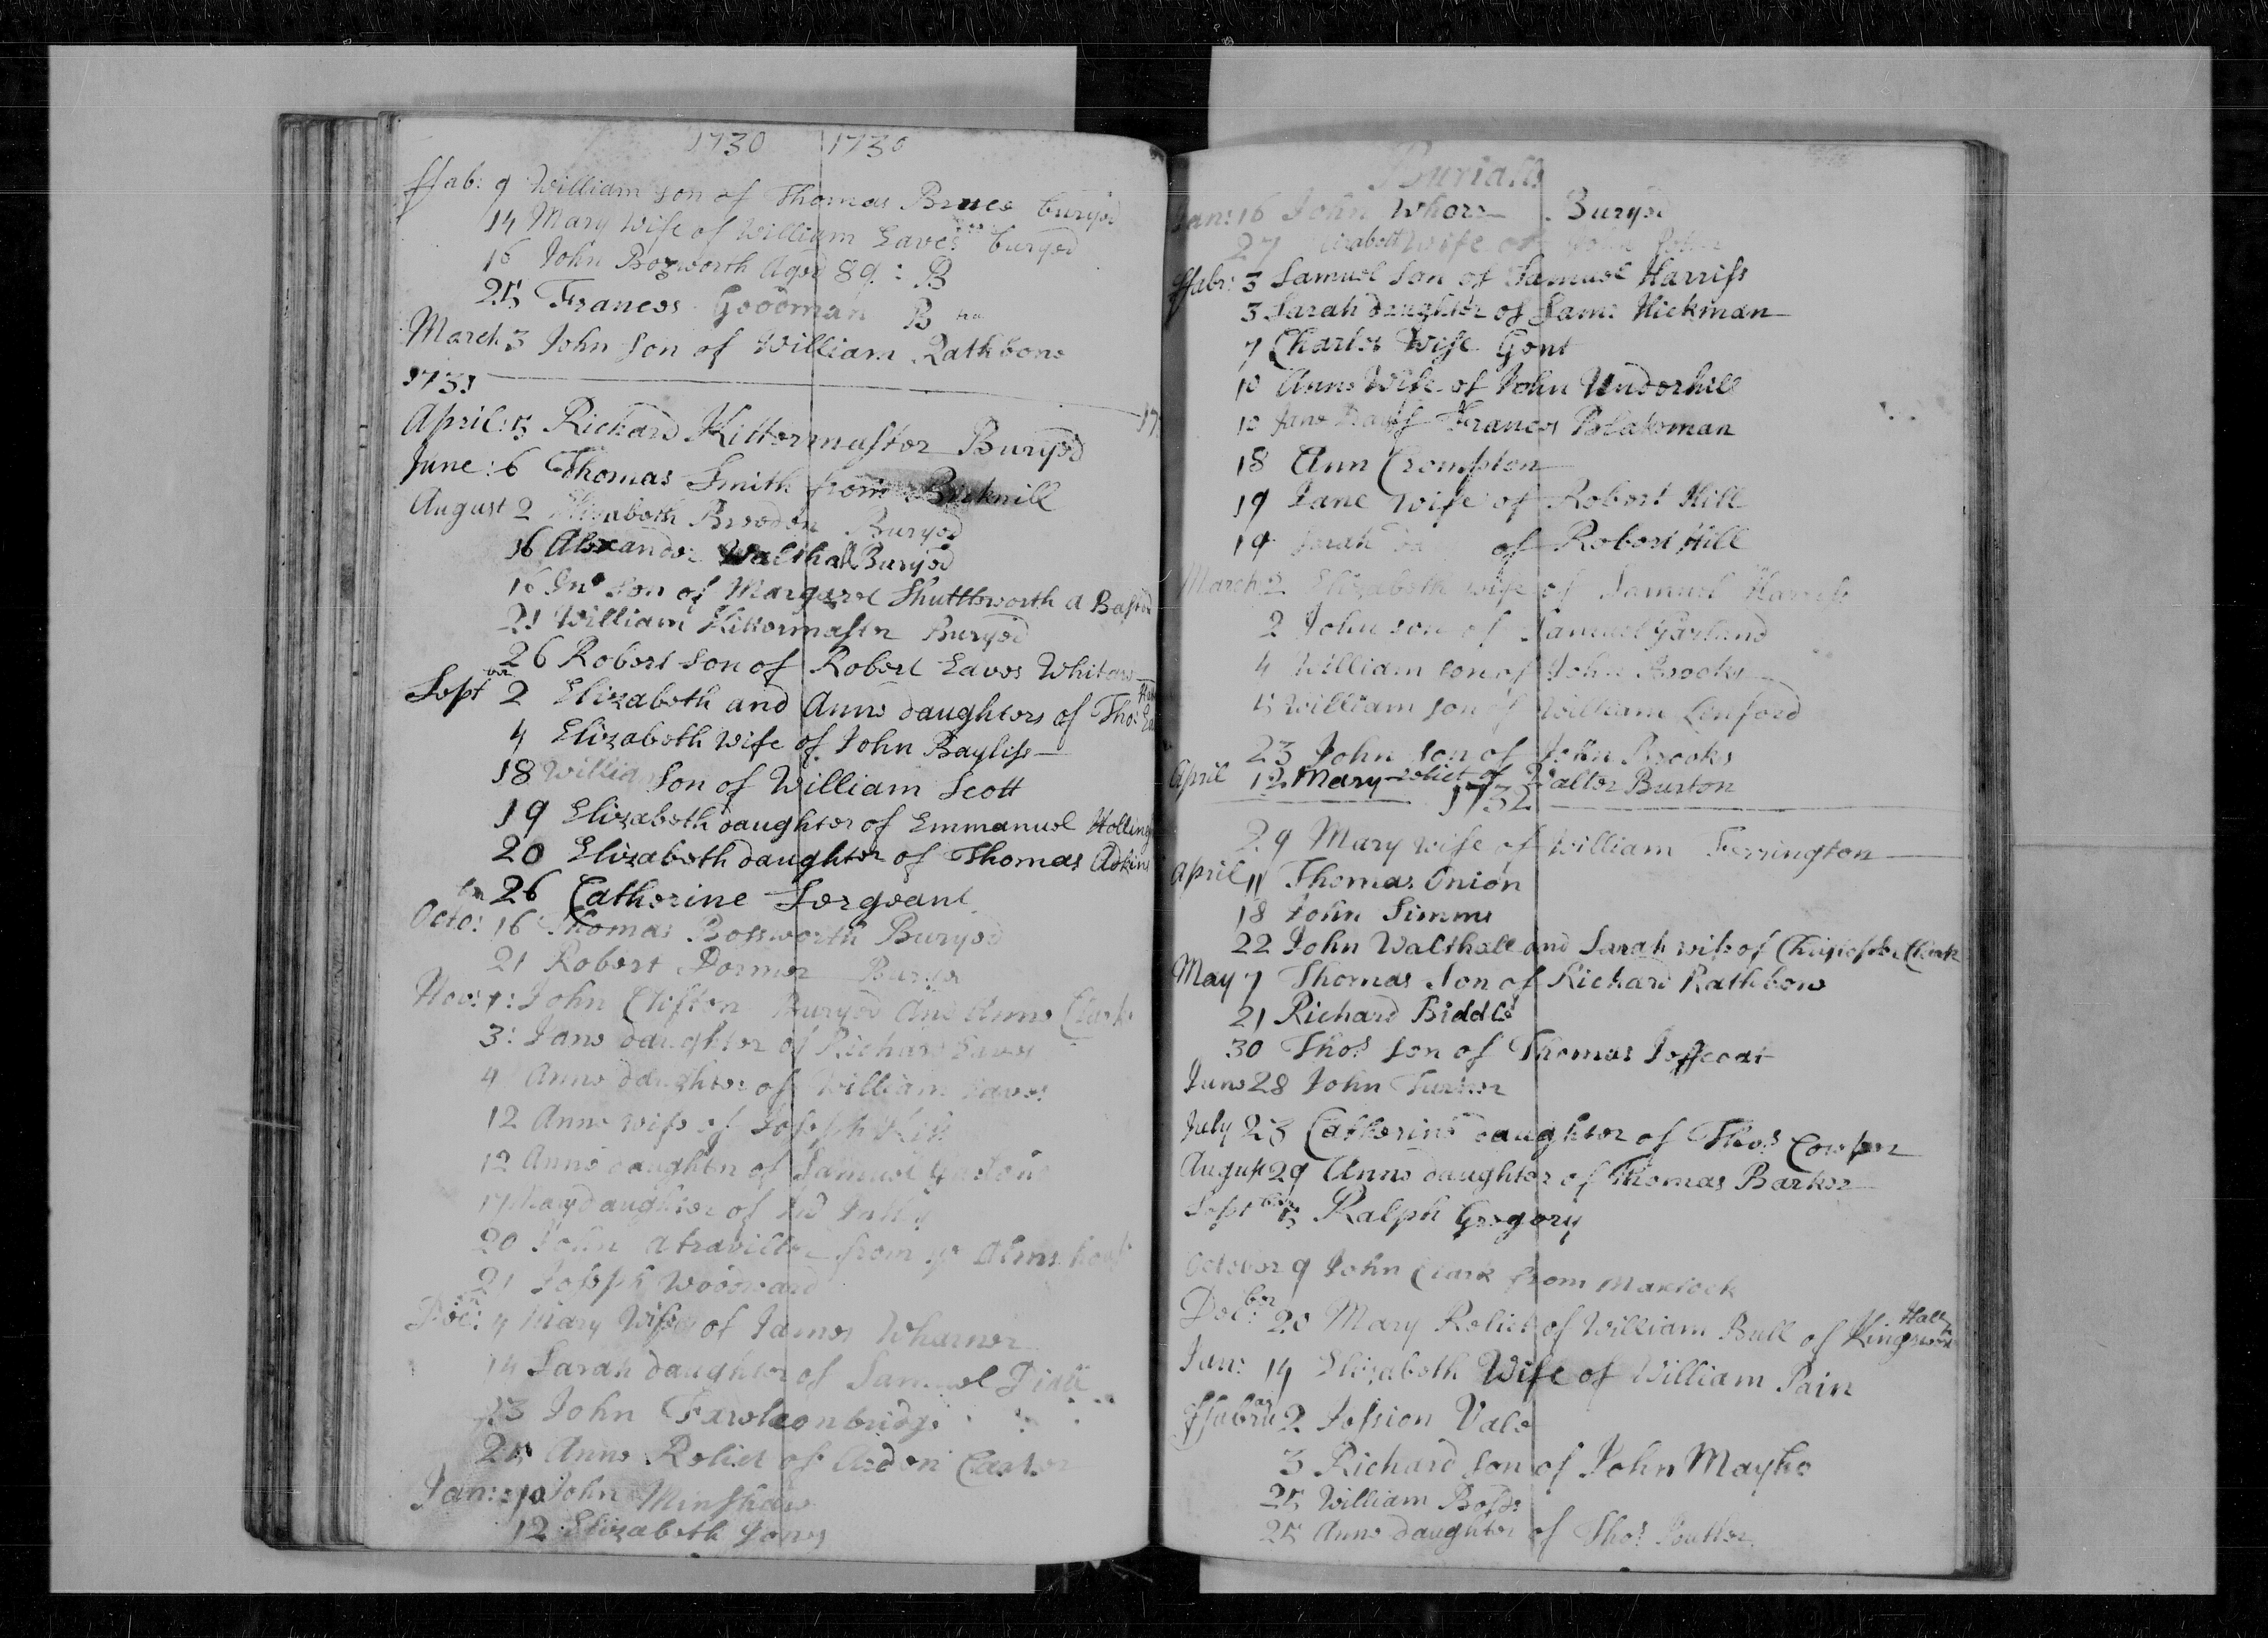 1730 1730
ffab: 9 William son of Thomas Bruce buryed
14 Mary Wife of William Eaves buryed
16 John Bozworth Aged 89: B
25 Frances Goodman B
March 3 John son of William Rathbone
1731
April: 5 Richard Kittermaster Buryed
June: 6 Thomas Smith from Bicknill
August 2 Elizabeth Breedon Buryed
16 Alexander Walthall Buryed
16 Jno son of Margaret Shuttleworth a Bastd
21 William Kittermaster Buryed
26 Robert son of Robert Eaves
Septber 2 Elizabeth and Anne daughters of Tho:
4 Elizabeth wife of John Bayliss
18 Willia son of William Scott
19 Elizabeth daughter of Emmanuel
20 Elizabeth daughter of Thomas Adkins
26 Catherine Sergeant
Octo: 16 Thomas Bossworth Buryed
21 Robert Dormer Buryed
Nov: 1: John Clifton Buryed and Anne Clark
3: Jane daughter of Richard Eaves
4 Anne daughter of William Eaves
12 Anne wife of Joseph
12 Anne daughter of Samuel
17 Mary daughter of
20 John a traviller from ye Alms house
21 Joseph Woodward
Dec: 4 Mary Wife of James Wharner
14 Sarah daughter of Samuel
23 John Fawlconbridge
25 Anne Relict of Carter
Jan: 10 John Minshaw
12 Elizabeth Jones
Burialls
Jan: 16 John Whore Buryed
27 Elizabeth wife of John
ffabr: 3 Samuel son of Samuel Harriss
3 Sarah daughter of Sam: Hickman
7 Charles Wife Gent
10 Anne Wife of John Underhill
10 Jane of Frances Blakeman
18 Ann Crompton
19 Jane wife of Robert Hill
19 Sarah da of Robert Hill
March 2 Elizabeth wife of Samuel Harriss
2 John son of Samuel Garland
4 William son of John Brooks
5 William son of William Linford
23 John son of John Brooks
April 12 Mary relict of Walter Burton
1732
29 Mary wife of William Ferrington
April 11 Thomas Onion
18 John Simms
22 John Walthall and Sarah wife of Christopher Clark
May 7 Thomas son of Richard Rathbone
21 Richard Biddle
30 Thos son of Thomas Jeffcoat
June 28 John Turner
July 23 Catherine daughter of Thos Cowper
August 29 Anne daughter of Thomas Barker
Septber 5 Ralph Gregory
October 9 John Clark from Maxtock
Decber 20 Mary Relict of William Bull of Kingswood
Jan: 14 Elizabeth Wife of William Pain
ffabru 2 Jossion Vale
3 Richard son of John Mayho
25 William
25 Anne daughter of Thos Butler